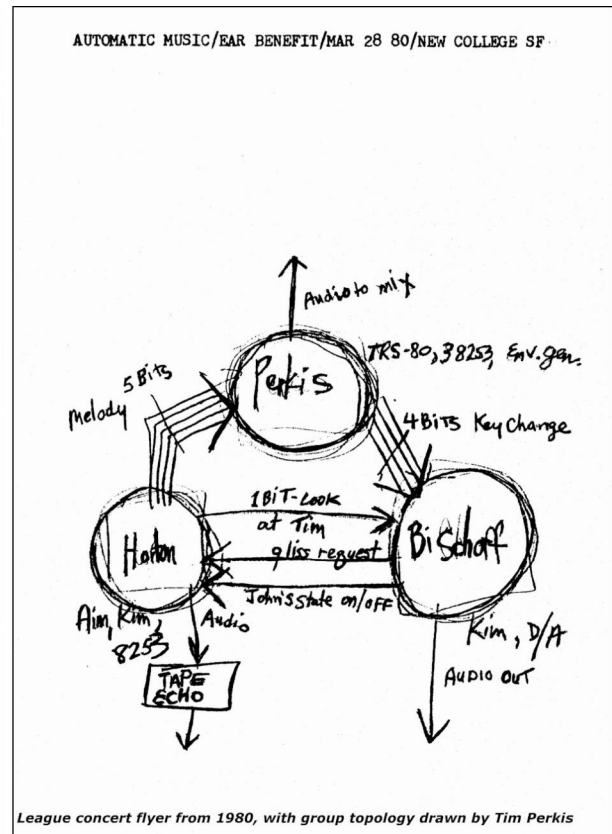 AUTOMATIC MUSIC/EAR BENEFIT/MAR 28 80/NEW COLLEGE SF
Audio to mix
Perkis
TRS-80, 3 8253, Env. gen.
5 Bits
Melody
4 BiTs Key Change
1 BiT-Look
at Tim
Horton
gliss request
BiSchoff
John's State on/off
Aim, Kim,
8253
Audio
Kim, D/A
TAPE
ECHO
AUDIO OUT
League concert flyer from 1980, with group topology drawn by Tim Perkis